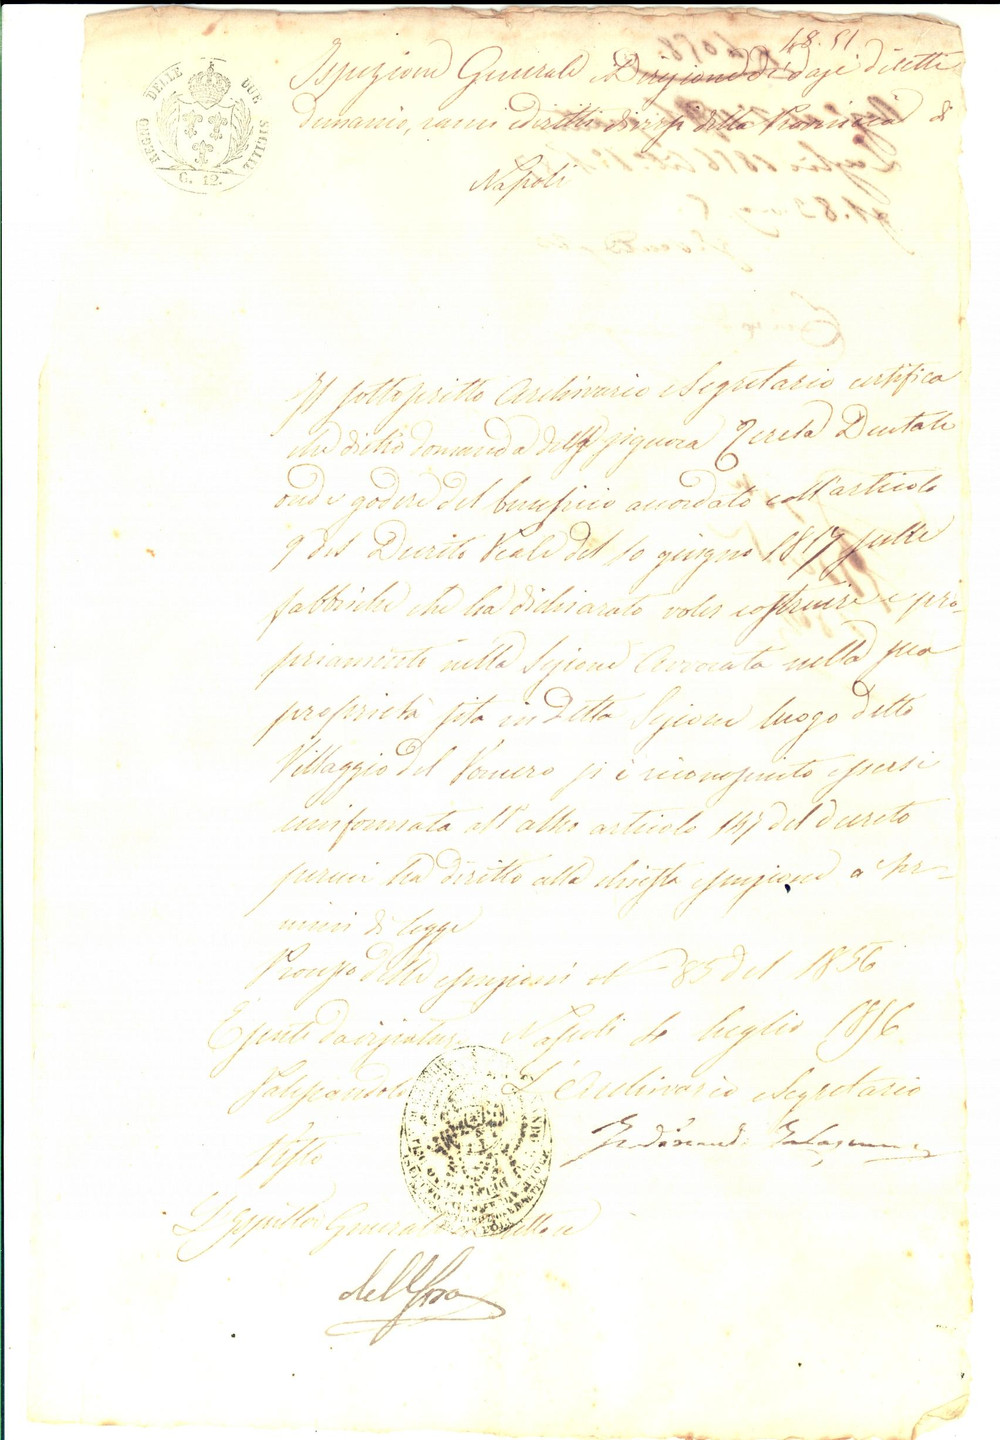 48.51
REGNO DELLE DUE SICILIE
G. 12.
Ispezione Generale e Direzione de' dazi diretti
demanio, rami e diritti diversi della Provincia di
Napoli
Il sottoscritto Archivario e Segretario certifica
che dietro domanda della signora Teresa Dentale
onde godere del beneficio accordato coll'articolo
9 del Decreto Reale del 10 giugno 1817 sulle
fabbriche che ha dichiarato voler costruire e pro-
priamente nella Sezione Avvocata nella sua
proprietà sita in detta Sezione luogo detto
Villaggio del Vomero si è riconosciuto essersi
uniformata all'altro articolo 147 del decreto
percui ha diritto alla chiesta esenzione a' ter-
mini di legge
Processo delle esenzioni al N. 85 del 1856
Napoli Luglio 1856
L'Archivario e Segretario
Visto
L'Ispettore Generale Direttore